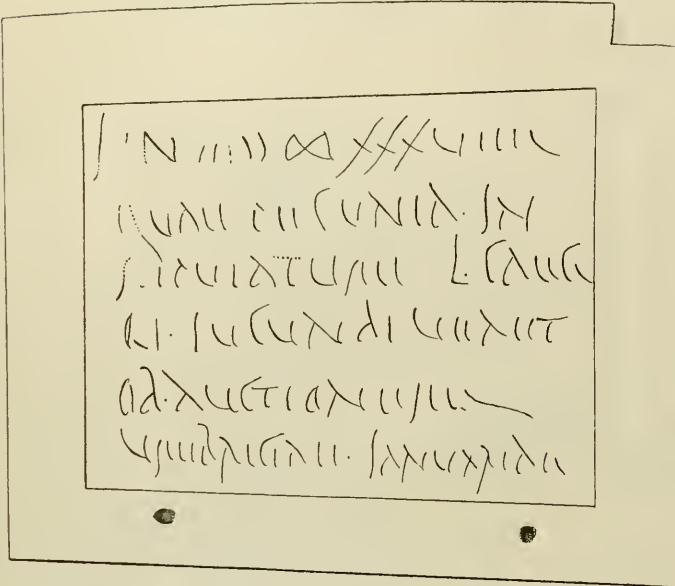 N ∞ XXXVIIII
quae pecunia · in
stipulatum L · Caeci
li · Iucundi venit
ob · auctionem
Umbriciae · Ianuariae